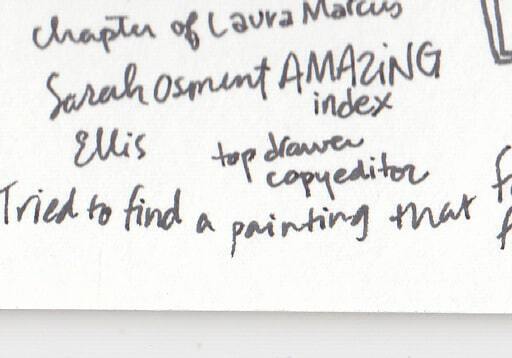 chapter of Laura Marcus
Sarah Osment AMAZiNG
index
Ellis top drawer
copyeditor
Tried to find a painting that